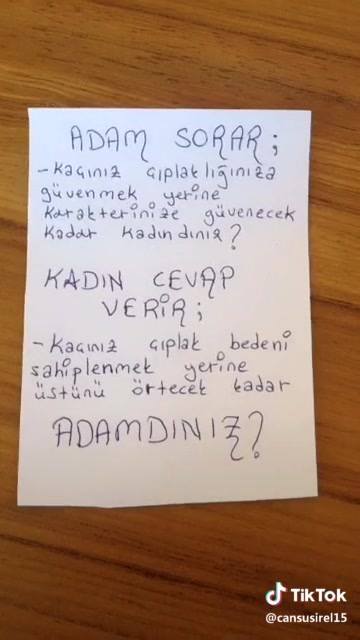 ADAM SORAR;
- Kaçınız çıplaklığınıza
güvenmek yerine
karakterinize güvenecek
kadar kadındınız?
KADIN CEVAP
VERİR;
- Kaçınız çıplak bedeni
sahiplenmek yerine
üstünü örtecek kadar
ADAMDINIZ?
TikTok
@cansusirel15